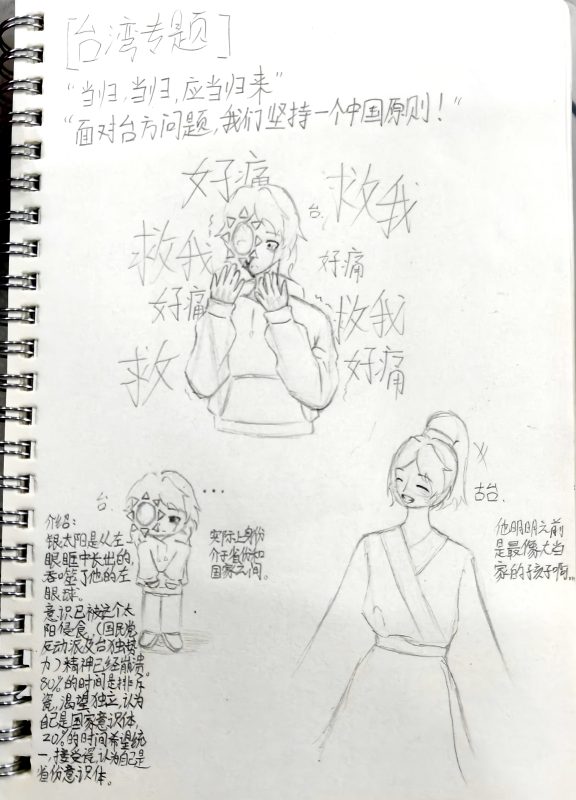 [台湾专题]
“当归,当归,应当归来”
“面对台方问题,我们坚持一个中国原则!”
好痛
救我
台.
救我
好痛
好痛
救我
救
好痛
台.
...
古台.
介绍:
银太阳是从左
眼眶中长出的,
吞噬了他的左
眼球。
意识已被这个太
阳侵食,(国民党
反动派及台独势
力)精神已经崩溃。
80%的时间是排斥
瓷,渴望独立,认为
自己是国家意识体,
20%的时间希望统
一,接受瓷,认为自己是
省份意识体。
实际上身份
介于省份和
国家之间。
他明明之前
是最像大当
家的孩子啊...